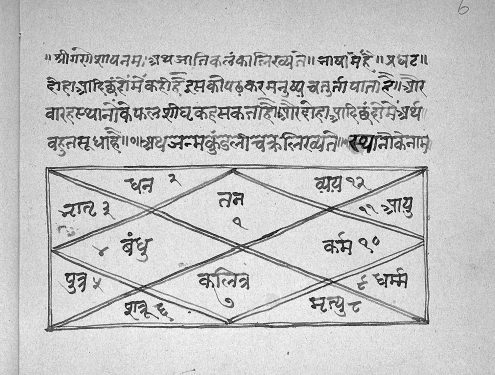 ६
॥ श्रीगणेशायनमः अथ जातिकलंकालिख्यते॥ भाषा में है॥ प्रघट॥
दोहा आदि छंदों में करी है इसको पढकर मनुष्य चतुर्ता पाता है॥ और
वारह स्थानों के फल शीघ्र कह सकता है॥ और दोहा आदि छंदों में अर्थ
बहुत सूधा है॥०॥ अथ जन्म कुंडली चक्र लिख्यते॥ स्थानों के नाम
धन २
व्यय १२
भ्रात ३
तन
१
११ आयु
४ बंधु
कर्म १०
पुत्र ५
कलित्र
७
९ धर्म्म
शत्रू ६
मृत्यु ८